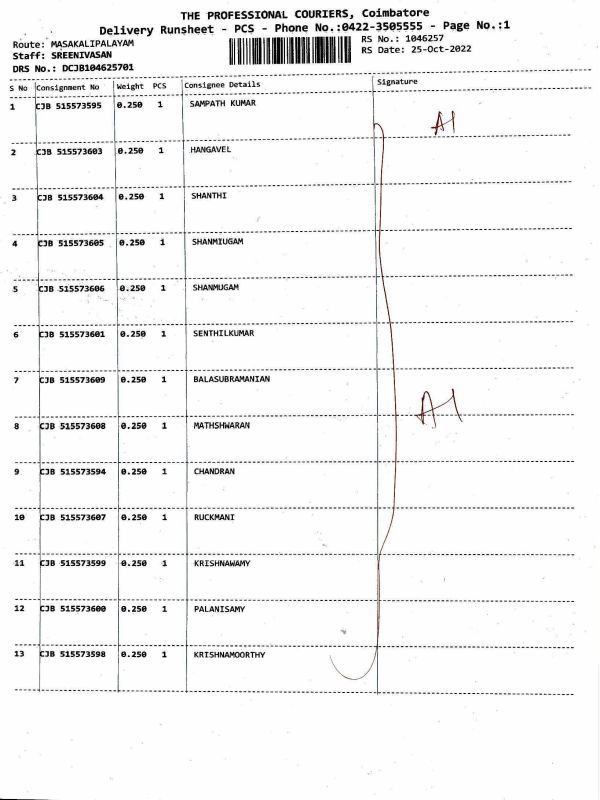 THE PROFESSIONAL COURIERS, Coimbatore
Delivery Runsheet - PCS - Phone No.:0422-3505555 - Page No.:1
Route: MASAKALIPALAYAM RS No.: 1046257
Staff: SREENIVASAN RS Date: 25-Oct-2022
DRS No.: DCJB104625701
S No Consignment No Weight PCS Consignee Details Signature
1 CJB 515573595 0.250 1 SAMPATH KUMAR A1
2 CJB 515573603 0.250 1 HANGAVEL
3 CJB 515573604 0.250 1 SHANTHI
4 CJB 515573605 0.250 1 SHANMIUGAM
5 CJB 515573606 0.250 1 SHANMUGAM
6 CJB 515573601 0.250 1 SENTHILKUMAR
7 CJB 515573609 0.250 1 BALASUBRAMANIAN A1
8 CJB 515573608 0.250 1 MATHSHWARAN
9 CJB 515573594 0.250 1 CHANDRAN
10 CJB 515573607 0.250 1 RUCKMANI
11 CJB 515573599 0.250 1 KRISHNAWAMY
12 CJB 515573600 0.250 1 PALANISAMY
13 CJB 515573598 0.250 1 KRISHNAMOORTHY